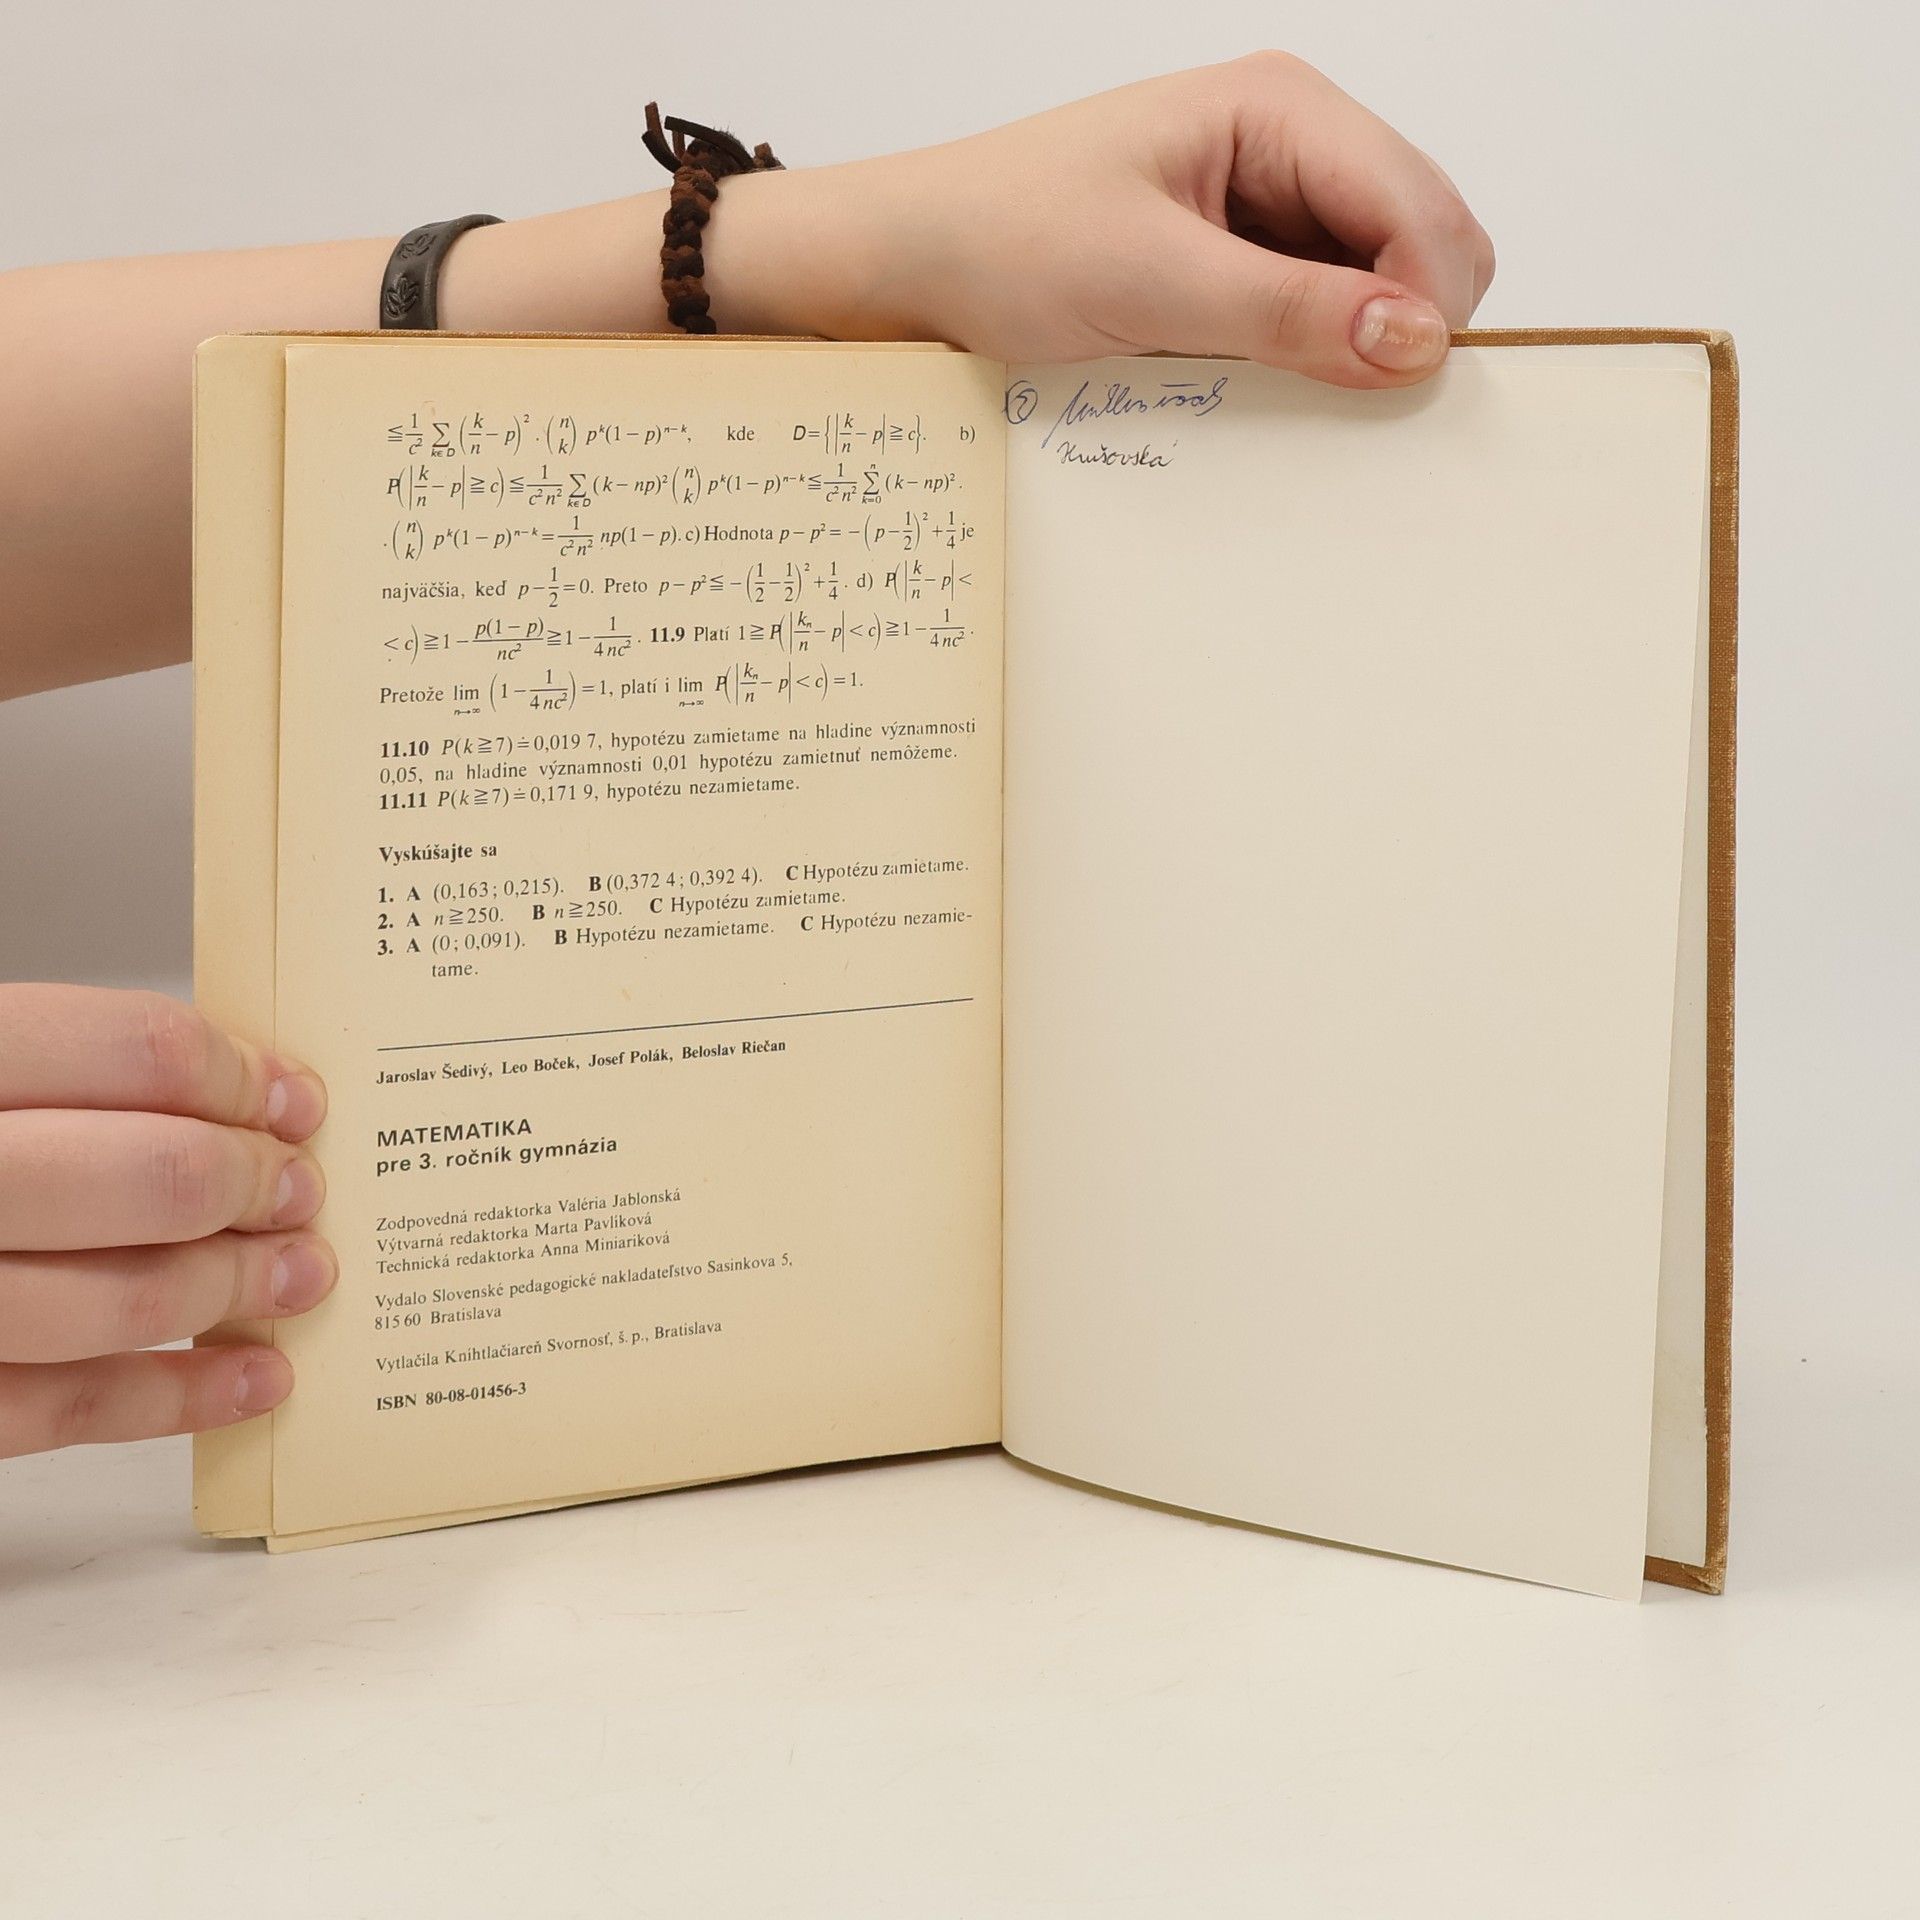 ≦ 1/c² ∑_{k∈D} (k/n − p)² . (n k) pᵏ(1 − p)ⁿ⁻ᵏ, kde D = {|k/n − p| ≧ c}. b)
P(|k/n − p| ≧ c) ≦ 1/c²n² ∑_{k∈D} (k − np)² (n k) pᵏ(1 − p)ⁿ⁻ᵏ ≦ 1/c²n² ∑_{k=0}^{n} (k − np)² .
. (n k) pᵏ(1 − p)ⁿ⁻ᵏ = 1/c²n² np(1 − p). c) Hodnota p − p² = −(p − 1/2)² + 1/4 je
najväčšia, keď p − 1/2 = 0. Preto p − p² ≦ −(1/2 − 1/2)² + 1/4 . d) P(|k/n − p| <
< c) ≧ 1 − p(1 − p)/nc² ≧ 1 − 1/4nc² . 11.9 Platí 1 ≧ P(|kₙ/n − p| < c) ≧ 1 − 1/4nc² .
Pretože lim_{n→∞} (1 − 1/4nc²) = 1, platí i lim_{n→∞} P(|kₙ/n − p| < c) = 1.
11.10 P(k ≧ 7) ≐ 0,019 7, hypotézu zamietame na hladine významnosti
0,05, na hladine významnosti 0,01 hypotézu zamietnuť nemôžeme.
11.11 P(k ≧ 7) ≐ 0,171 9, hypotézu nezamietame.
Vyskúšajte sa
1. A (0,163; 0,215). B (0,372 4; 0,392 4). C Hypotézu zamietame.
2. A n ≧ 250. B n ≧ 250. C Hypotézu zamietame.
3. A (0; 0,091). B Hypotézu nezamietame. C Hypotézu nezamie-
tame.
Jaroslav Šedivý, Leo Boček, Josef Polák, Beloslav Riečan
MATEMATIKA
pre 3. ročník gymnázia
Zodpovedná redaktorka Valéria Jablonská
Výtvarná redaktorka Marta Pavlíková
Technická redaktorka Anna Miniariková
Vydalo Slovenské pedagogické nakladateľstvo Sasinkova 5,
815 60 Bratislava
Vytlačila Kníhtlačiareň Svornosť, š. p., Bratislava
ISBN 80-08-01456-3